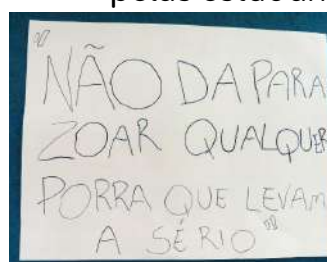 "NÃO DA PARA
ZOAR QUALQUER
PORRA QUE LEVAM
A SÉRIO"